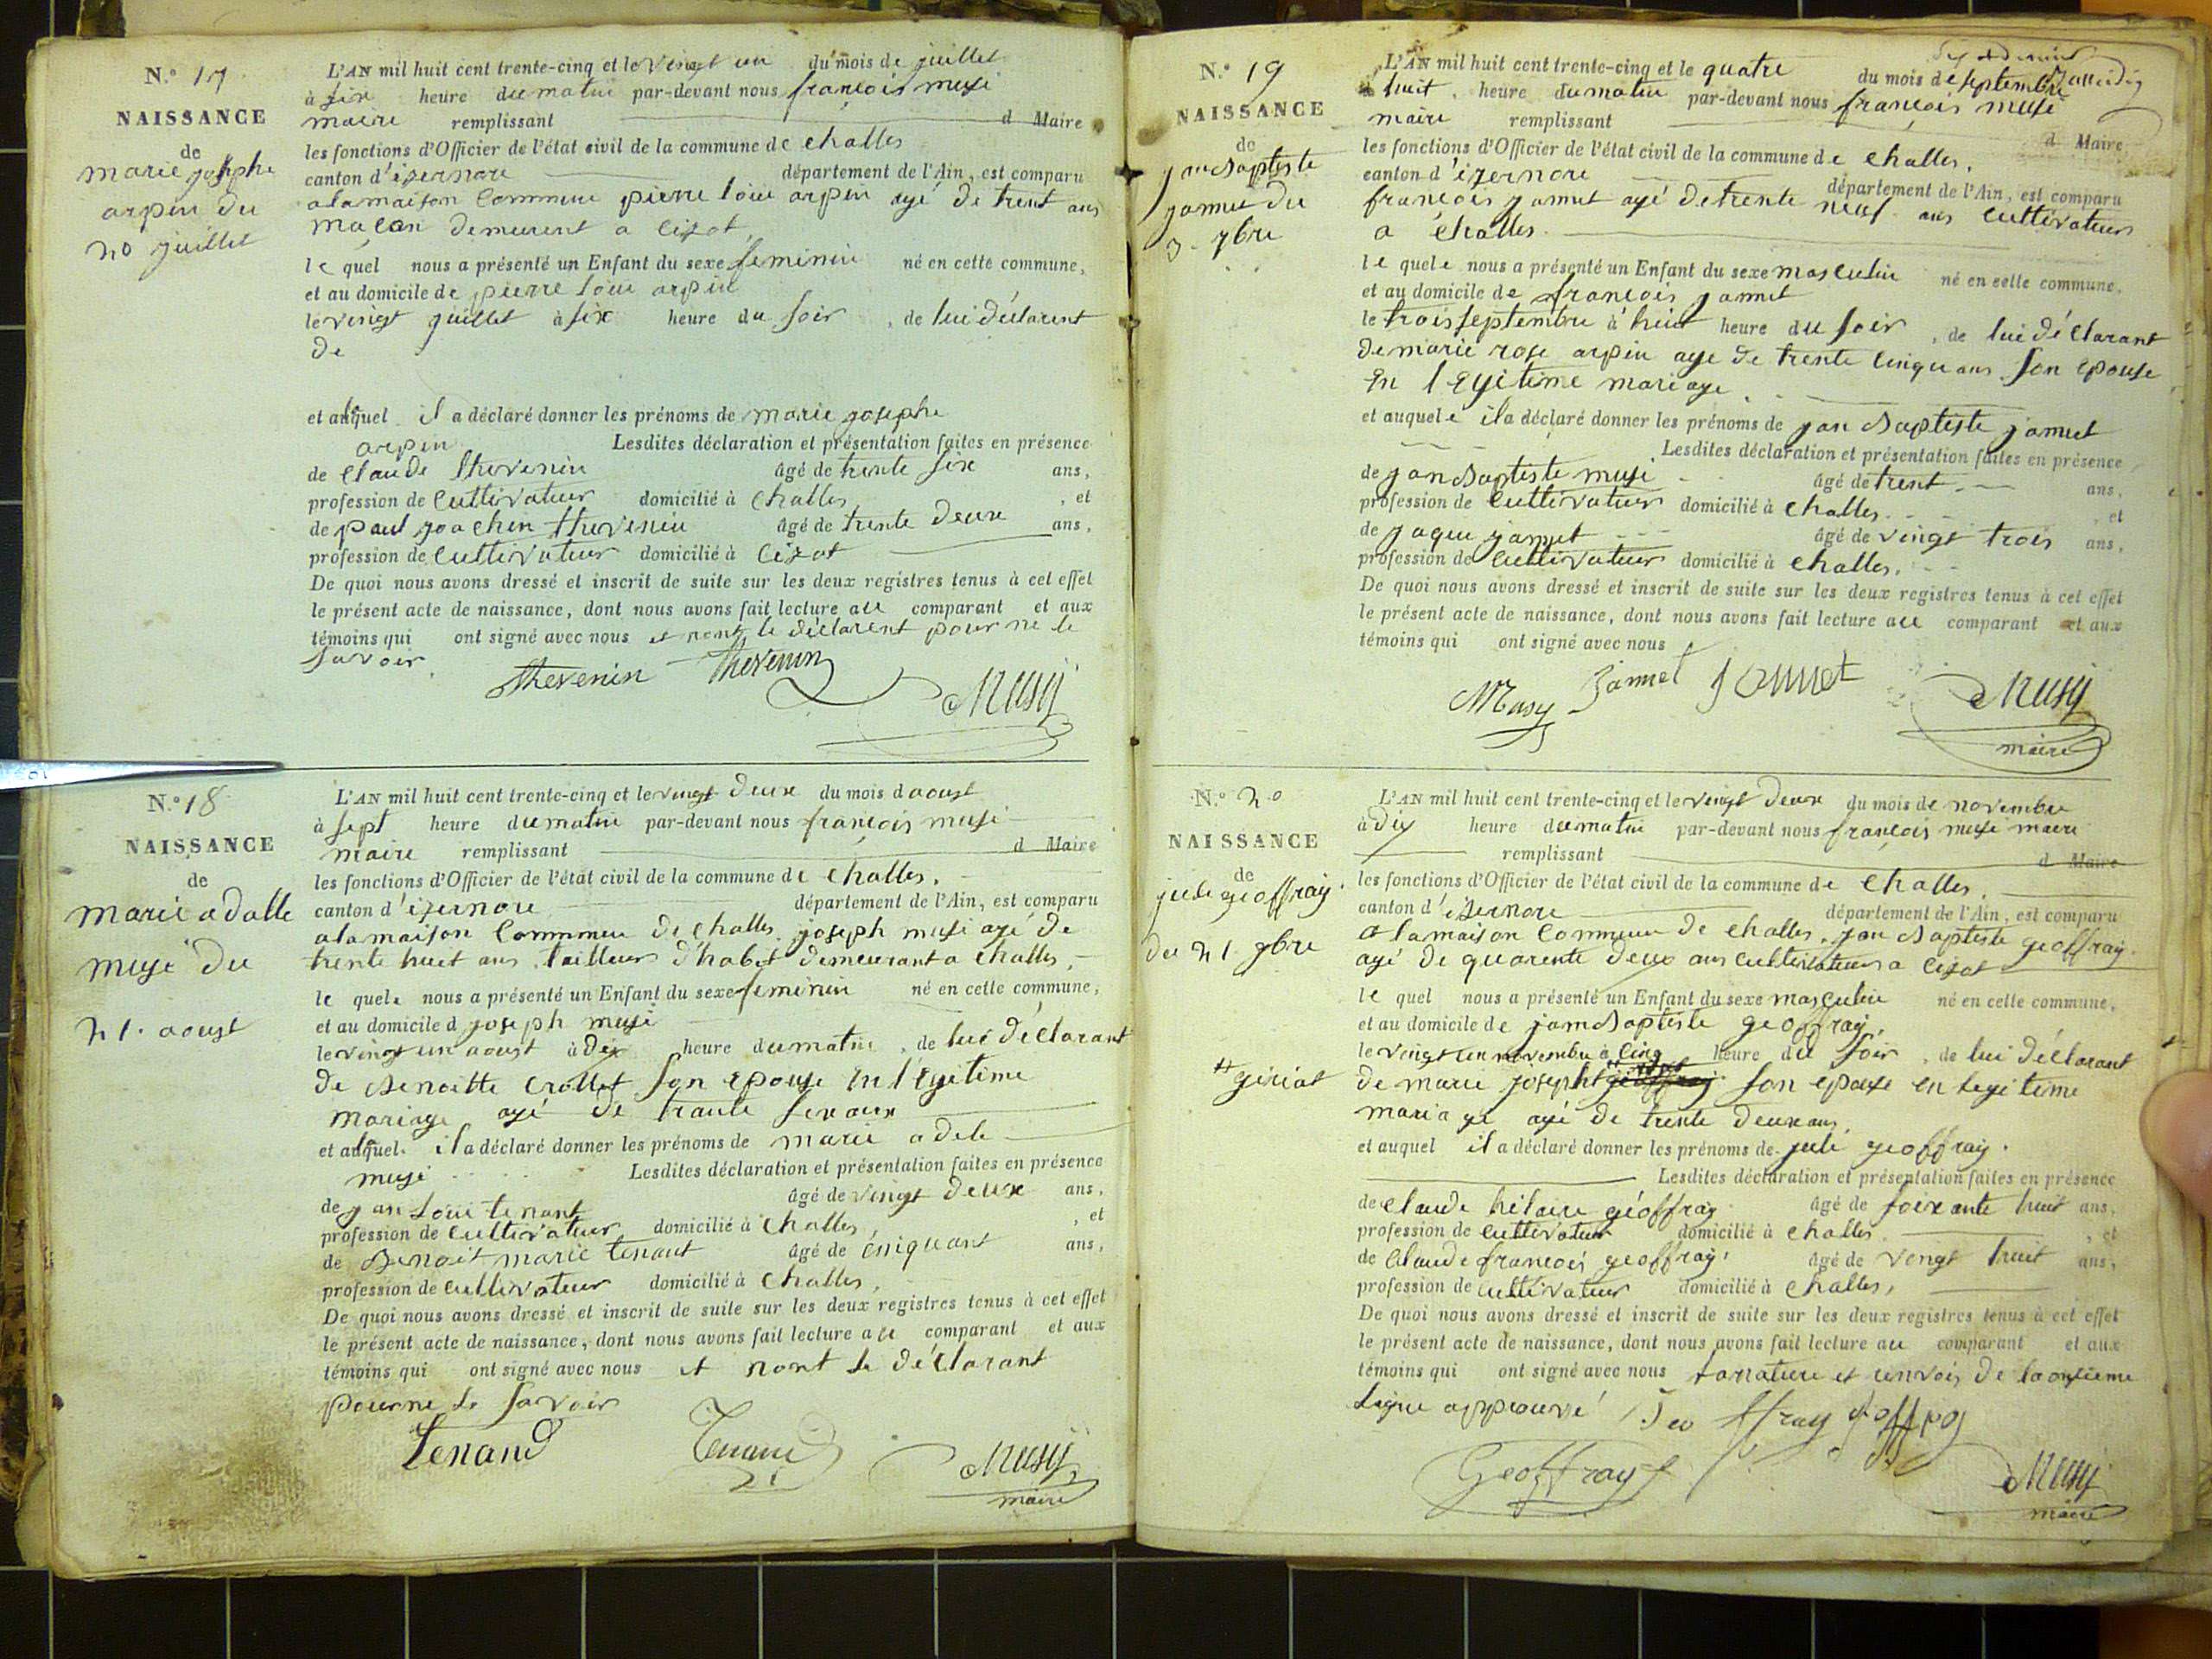 N.° 17
NAISSANCE
de
marie josephe
arpin du
20 juillet
L'AN mil huit cent trente-cinq et le vingt un du mois de juillet
à six heure du matin par-devant nous françois musi
maire remplissant d Maire
les fonctions d'Officier de l'état civil de la commune de challes
canton d'izernore département de l'Ain, est comparu
alamaison commune pierre loui arpin agé de trent ans
maçon demeurent a cizot
le quel nous a présenté un Enfant du sexe feminin né en cette commune,
et au domicile de pierre loui arpin
le vingt juillet à six heure du soir, de lui déclarent
de
et auquel il a déclaré donner les prénoms de marie josephe
arpin Lesdites déclaration et présentation faites en présence
de claude thevenin âgé de trente six ans,
profession de cultivateur domicilié à challes, et
de paul joachin thevenin âgé de trente deux ans,
profession de cultivateur domicilié à cizot
De quoi nous avons dressé et inscrit de suite sur les deux registres tenus à cet effet
le présent acte de naissance, dont nous avons fait lecture au comparant et aux
témoins qui ont signé avec nous et nont le déclarent pour ne le
savoir.
thevenin thevenin
Musy
N.° 18
NAISSANCE
de
marie adalle
musi du
21. aoust
L'AN mil huit cent trente-cinq et le vingt deux du mois d aoust
à sept heure du matin par-devant nous françois musi
maire remplissant d Maire
les fonctions d'Officier de l'état civil de la commune de challes.
canton d'izernore département de l'Ain, est comparu
alamaison commune de challes joseph musi agé de
trente huit ans tailleur d'habit demeurant a challes,
le quel nous a présenté un Enfant du sexe feminin né en cette commune,
et au domicile d joseph musi
le vingt un aoust à dix heure du matin, de lui déclarant
de Benoitte crollet son epouse en légitime
mariage agé de trante six ans
et auquel il a déclaré donner les prénoms de marie adele
musi Lesdites déclaration et présentation faites en présence
de jan loui tenant âgé de vingt deux ans,
profession de cultivateur domicilié à challes, et
de Benoit marie tenant âgé de cinquant ans,
profession de cultivateur domicilié à challes,
De quoi nous avons dressé et inscrit de suite sur les deux registres tenus à cet effet
le présent acte de naissance, dont nous avons fait lecture au comparant et aux
témoins qui ont signé avec nous et nont le déclarant
pour ne le savoir
Tenand Tenand
Musy
maire
N.° 19
NAISSANCE
de
jan Baptiste
jamet du
3. 7bre
L'AN mil huit cent trente-cinq et le quatre du mois de septembre
à huit. heure du matin par-devant nous françois musi
maire remplissant d Maire
les fonctions d'Officier de l'état civil de la commune de challes.
canton d'izernore département de l'Ain, est comparu
françois jamet agé de trente neuf ans cultivateur
a challes.
le quele nous a présenté un Enfant du sexe masculin né en cette commune,
et au domicile de françois jamet
le trois septembre à huit heure du soir, de lui déclarant
de marie rose arpin age de trente cinque ans son epouse
en legitime mariage.
et auquele il a déclaré donner les prénoms de jan Baptiste jamet
Lesdites déclaration et présentation faites en présence
de jan Baptiste musi âgé de trent ans,
profession de cultivateur domicilié à challes. et
de jaque jamet âgé de vingt trois ans,
profession de cultivateur domicilié à challes.
De quoi nous avons dressé et inscrit de suite sur les deux registres tenus à cet effet
le présent acte de naissance, dont nous avons fait lecture au comparant et aux
témoins qui ont signé avec nous
Musy Jamet Jamet
Musy
maire
N.° 20
NAISSANCE
de
jule geoffray.
du 21. 9bre
giriat
L'AN mil huit cent trente-cinq et le vingt deux du mois de novembre
à dix heure du matin par-devant nous françois musi maire
remplissant d Maire
les fonctions d'Officier de l'état civil de la commune de challes.
canton d'izernore département de l'Ain, est comparu
a la maison commune de challes. jan Baptiste geoffray.
agé de quarente deux ans cultivateur a cizot
le quel nous a présenté un Enfant du sexe masculin né en cette commune,
et au domicile de jam Baptiste geoffray.
le vingt un novembre à cinq heure du soir, de lui déclarant
de marie josepht geoffray son epouse en legitime
mariage agé de trente deux ans.
et auquel il a déclaré donner les prénoms de jule geoffray.
Lesdites déclaration et présentation faites en présence
de claude hilaire géoffray âgé de soixante huit ans,
profession de cultivateur domicilié à challes, et
de claude françois geoffray. âgé de vingt huit ans,
profession de cultivateur domicilié à challes,
De quoi nous avons dressé et inscrit de suite sur les deux registres tenus à cet effet
le présent acte de naissance, dont nous avons fait lecture au comparant et aux
témoins qui ont signé avec nous et de la onsieme
Ligne approuvé Geoffray
Geoffray
Musy
maire